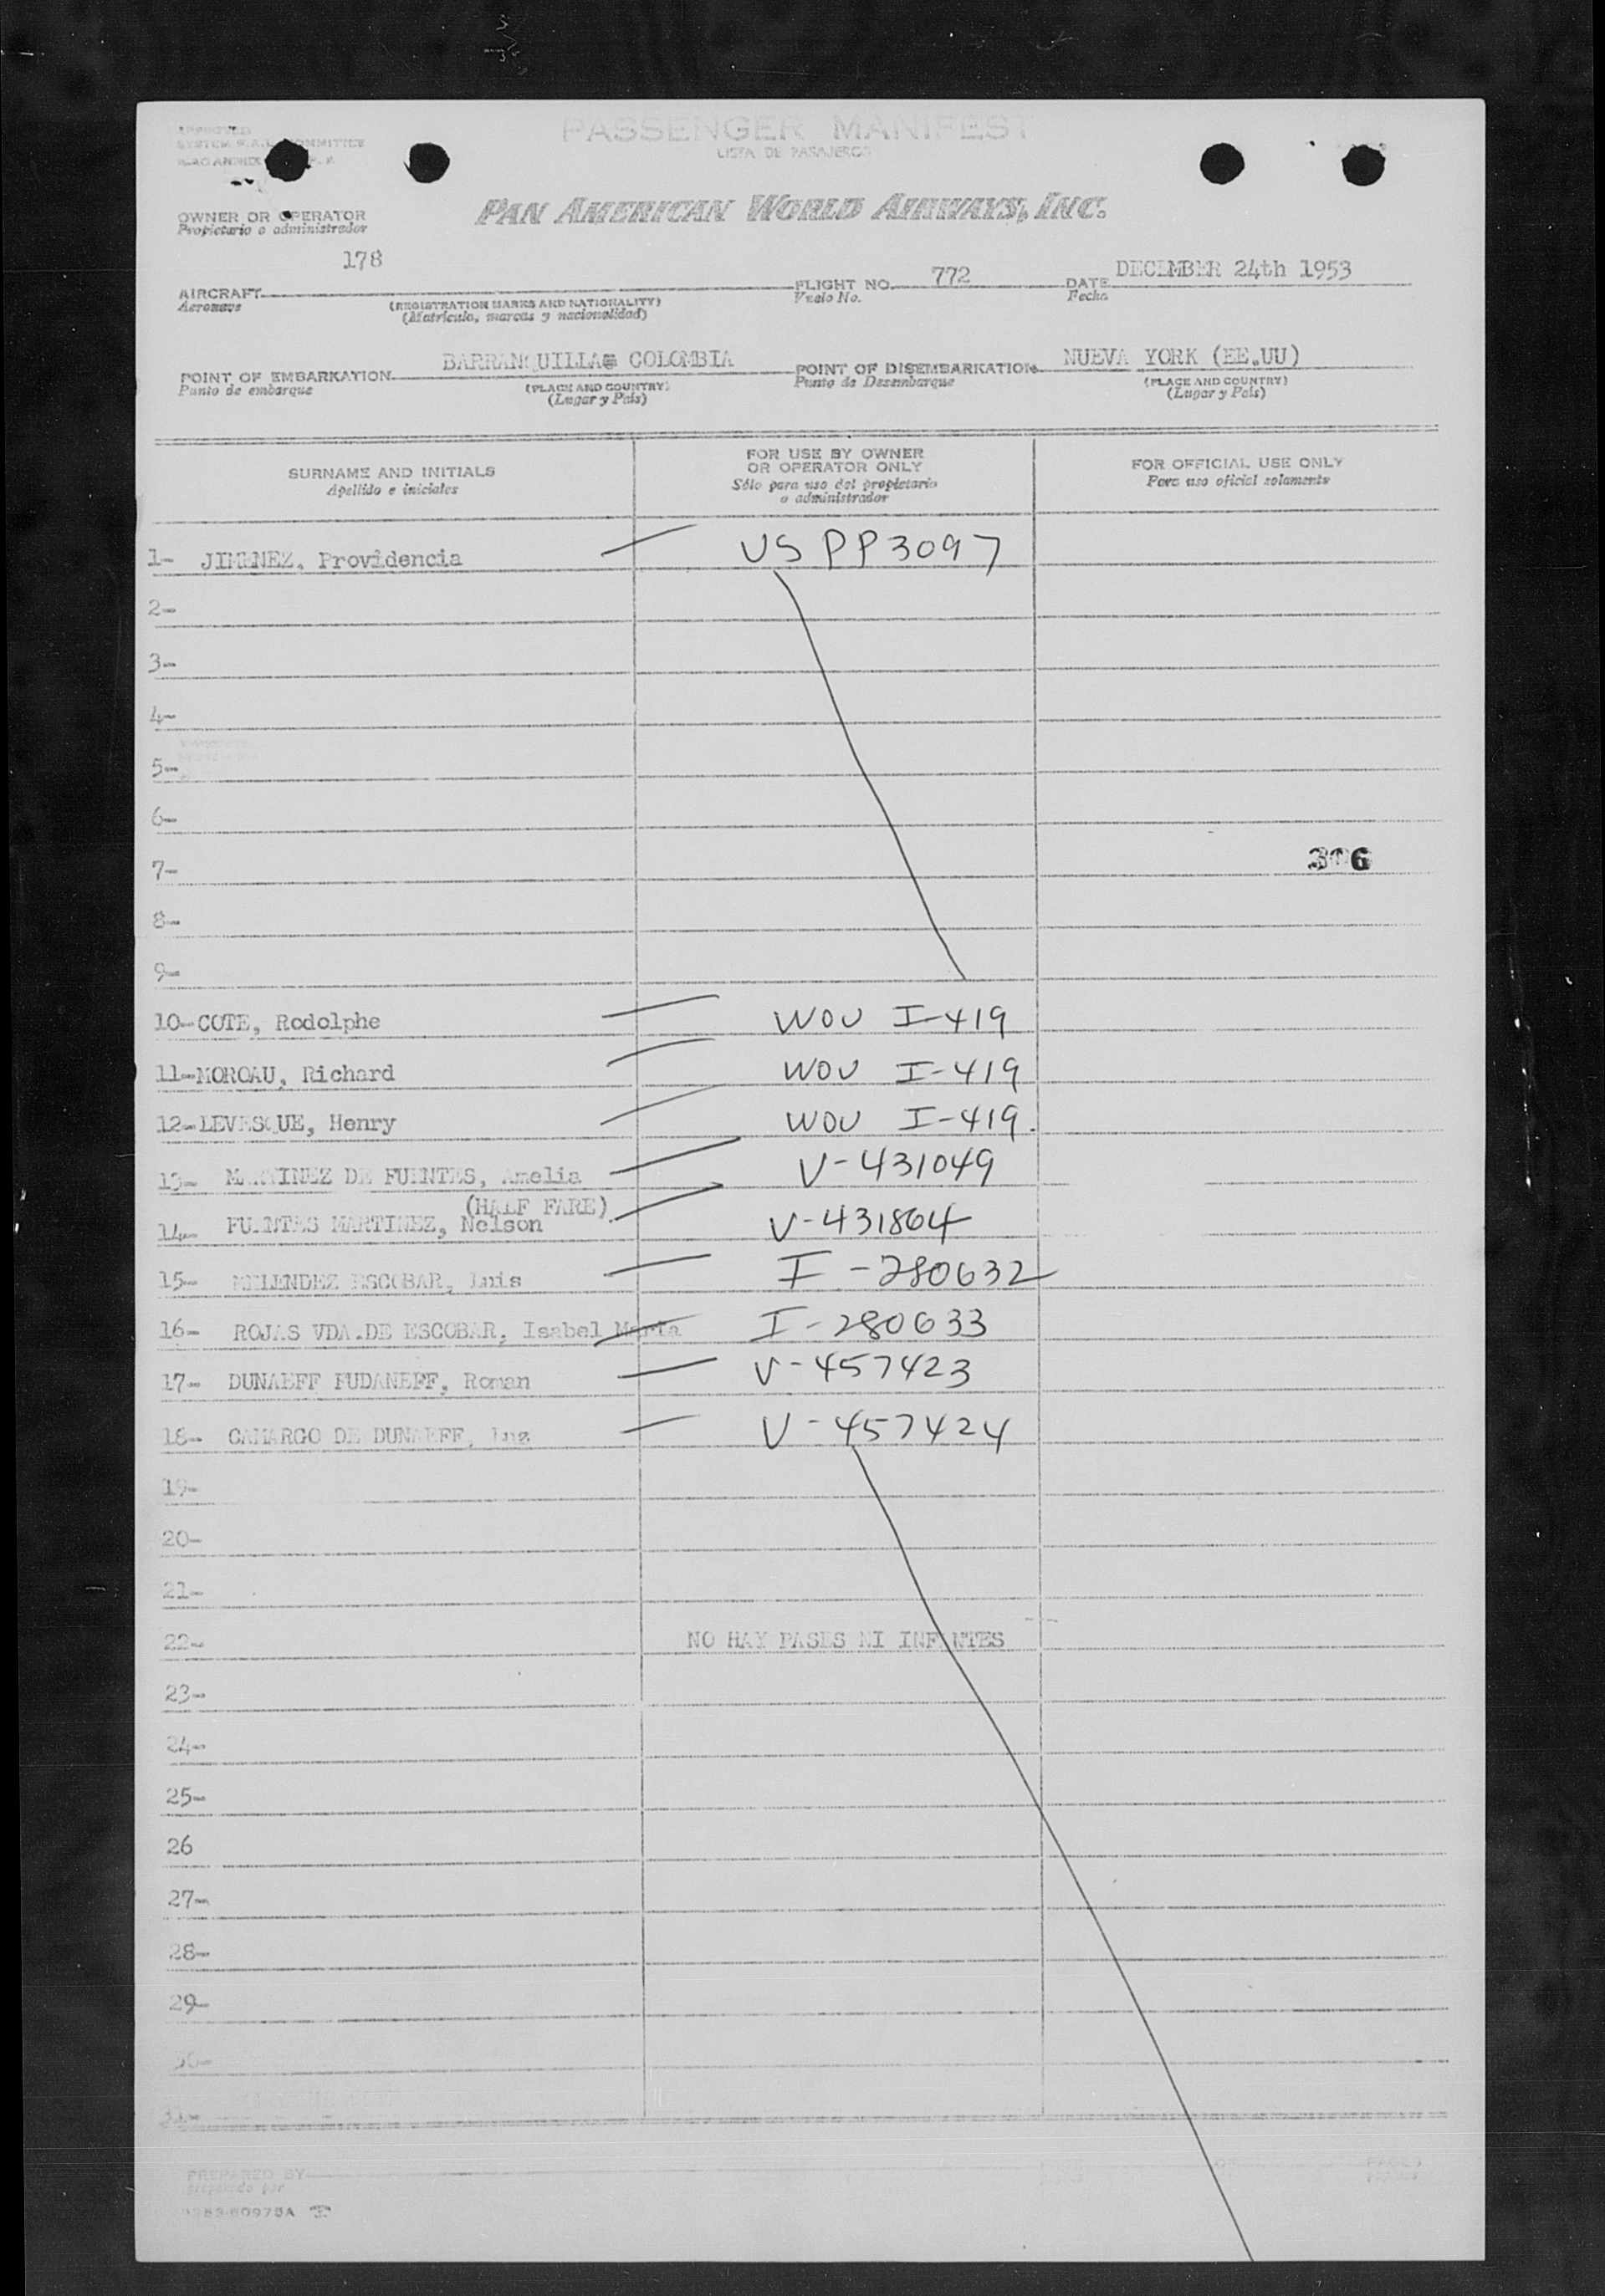 PASSENGER MANIFEST
LISTA DE PASAJEROS
PAN AMERICAN WORLD AIRWAYS, INC.
OWNER OR OPERATOR
Propietario o administrador
178
AIRCRAFT
Aeronave
(REGISTRATION MARKS AND NATIONALITY)
(Matrícula, marcas y nacionalidad)
FLIGHT NO. 772
Vuelo No.
DATE DECEMBER 24th 1953
Fecha
POINT OF EMBARKATION BARRANQUILLA COLOMBIA
Punto de embarque
(PLACE AND COUNTRY)
(Lugar y País)
POINT OF DISEMBARKATION NUEVA YORK (EE.UU)
Punto de Desembarque
(PLACE AND COUNTRY)
(Lugar y País)
SURNAME AND INITIALS
Apellido e iniciales
FOR USE BY OWNER
OR OPERATOR ONLY
Sólo para uso del propietario
o administrador
FOR OFFICIAL USE ONLY
Para uso oficial solamente
1- JIMENEZ, Providencia US PP 3097
2-
3-
4-
5-
6-
7-
8-
9-
10-COTE, Rodolphe WOV I-419
11-MOROAU, Richard WOV I-419
12-LEVESQUE, Henry WOV I-419.
13- MARTINEZ DE FUENTES, Amelia V-431049
(HALF FARE)
14- FUENTES MARTINEZ, Nelson V-431864
15- MELENDEZ ESCOBAR, Luis I-280632
16- ROJAS VDA.DE ESCOBAR, Isabel Maria I-280633
17- DUNAEFF FUDANEFF, Roman V-457423
18- CAMARGO DE DUNAEFF, Luz V-457424
19-
20-
21-
22- NO HAY PASES NI INFANTES
23-
24-
25-
26
27-
28-
29-
30-
31-
PREPARED BY